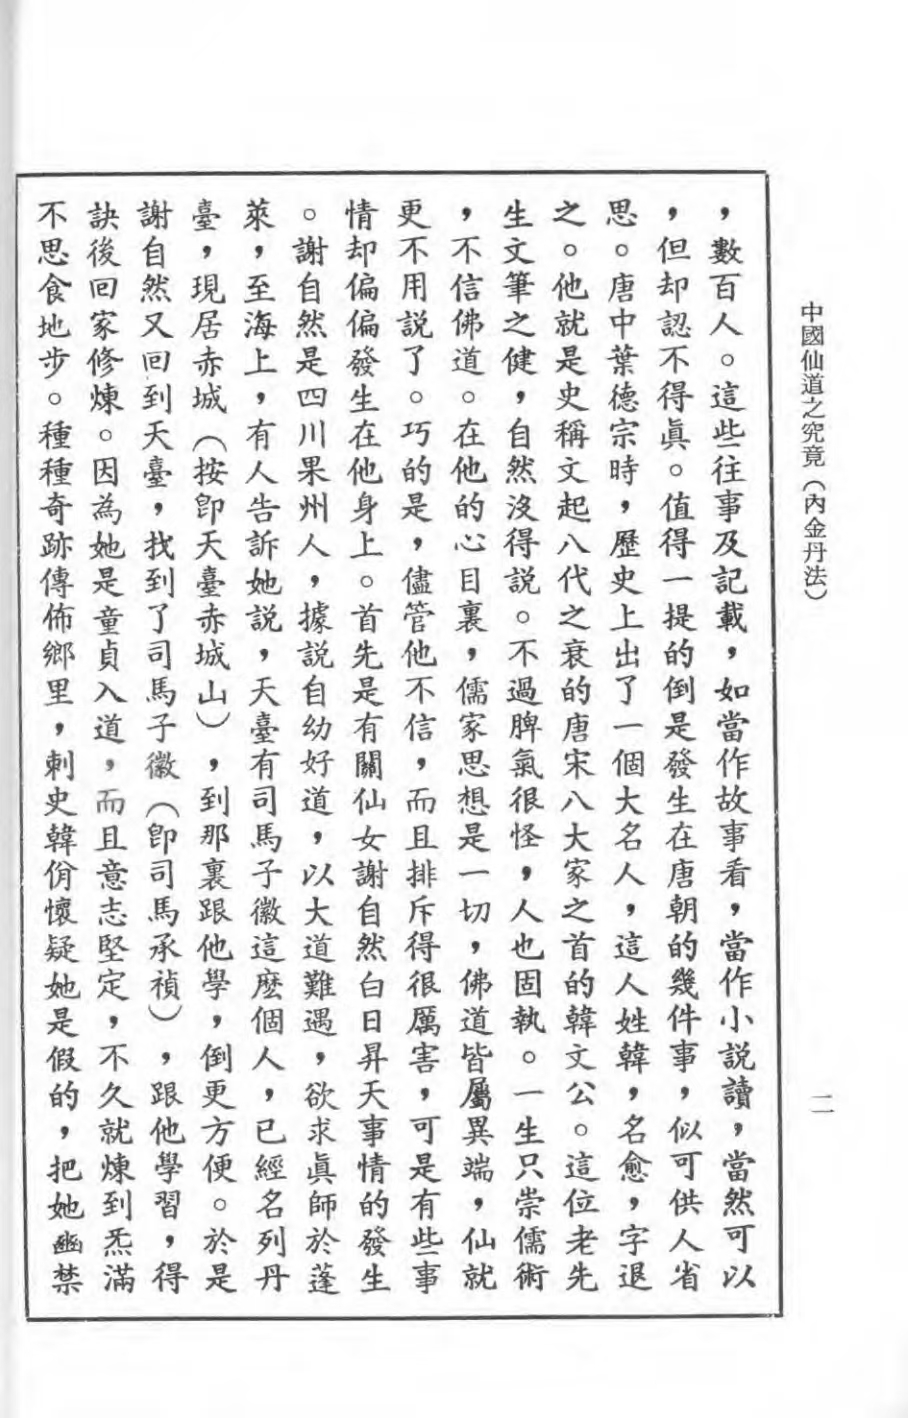 中國仙道之究竟（內金丹法）
二
，數百人。這些往事及記載，如當作故事看，當作小説讀，當然可以
，但却認不得眞。值得一提的倒是發生在唐朝的幾件事，似可供人省
思。唐中葉德宗時，歷史上出了一個大名人，這人姓韓，名愈，字退
之。他就是史稱文起八代之衰的唐宋八大家之首的韓文公。這位老先
生文筆之健，自然沒得説。不過脾氣很怪，人也固執。一生只崇儒術
，不信佛道。在他的心目裏，儒家思想是一切，佛道皆屬異端，仙就
更不用説了。巧的是，儘管他不信，而且排斥得很厲害，可是有些事
情却偏偏發生在他身上。首先是有關仙女謝自然白日昇天事情的發生
。謝自然是四川果州人，據説自幼好道，以大道難遇，欲求眞師於蓬
萊，至海上，有人告訴她説，天臺有司馬子徽這麽個人，已經名列丹
臺，現居赤城（按卽天臺赤城山），到那裏跟他學，倒更方便。於是
謝自然又回到天臺，找到了司馬子徽（卽司馬承禎），跟他學習，得
訣後回家修煉。因為她是童貞入道，而且意志堅定，不久就煉到炁滿
不思食地步。種種奇跡傳佈鄉里，刺史韓佾懷疑她是假的，把她幽禁